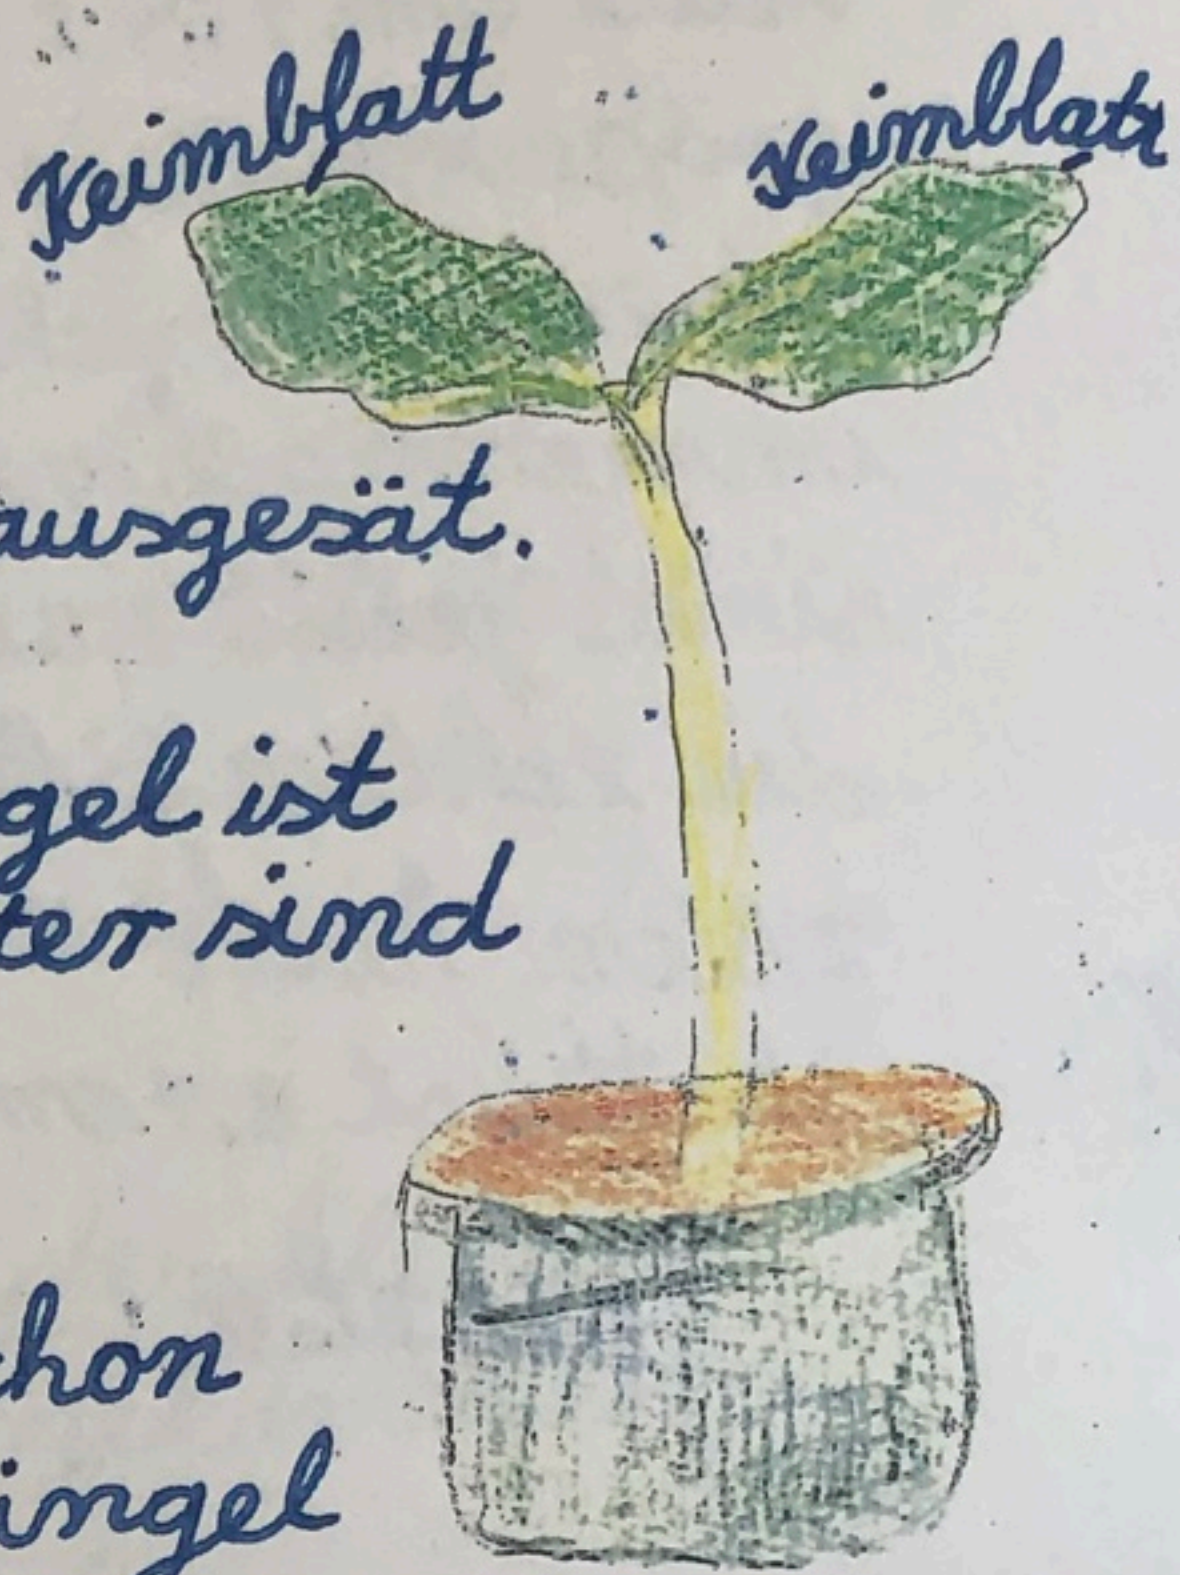 Keimblatt
Keimblatt
ausgesät.
gel ist
ter sind
hon
ingel